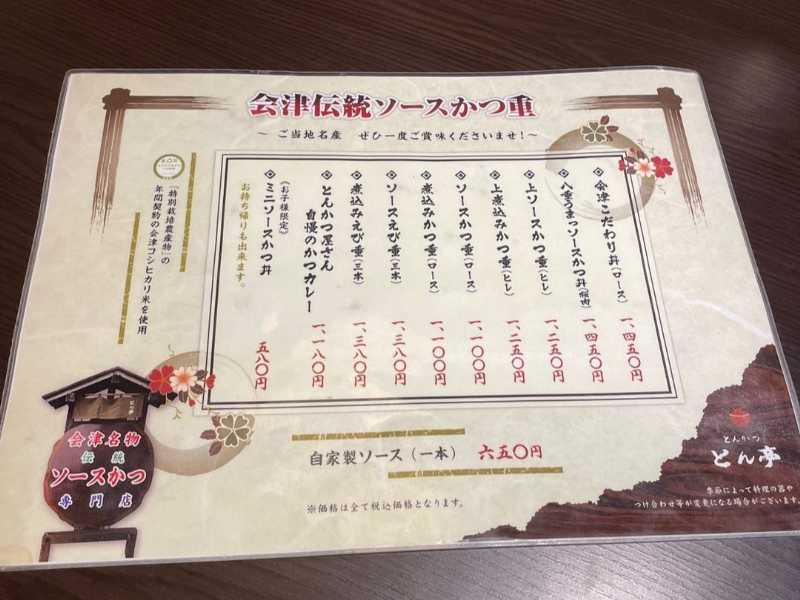 会津伝統ソースかつ重
～ ご当地名産　ぜひ一度ご賞味くださいませ！～
◈ 会津こだわり丼（ロース） 一、四五〇円
◈ 八重うまっソースかつ丼（桜肉） 一、四五〇円
◈ 上ソースかつ重（ヒレ） 一、二五〇円
◈ 上煮込みかつ重（ヒレ） 一、二五〇円
◈ ソースかつ重（ロース） 一、一〇〇円
◈ 煮込みかつ重（ロース） 一、一〇〇円
◈ ソースえび重（三本） 一、三八〇円
◈ 煮込みえび重（三本） 一、三八〇円
◈ とんかつ屋さん
自慢のかつカレー 一、一八〇円
（お子様限定）
◈ ミニソースかつ丼 五八〇円
お持ち帰りも出来ます。
「特別栽培農産物」の
年間契約の会津コシヒカリ米を使用
自家製ソース（一本） 六五〇円
※価格は全て税込価格となります。
会津名物
伝統
ソースかつ
専門店
とんかつ
とん亭
季節によって料理の器や
つけ合わせ等が変更になる場合がございます。